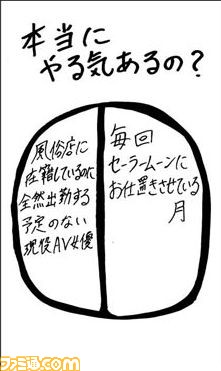 本当に
やる気あるの？
風俗店に
在籍しているのに
全然出勤する
予定のない
現役AV女優
毎回
セーラームーンに
お仕置きさせている
月
ファミ通.com